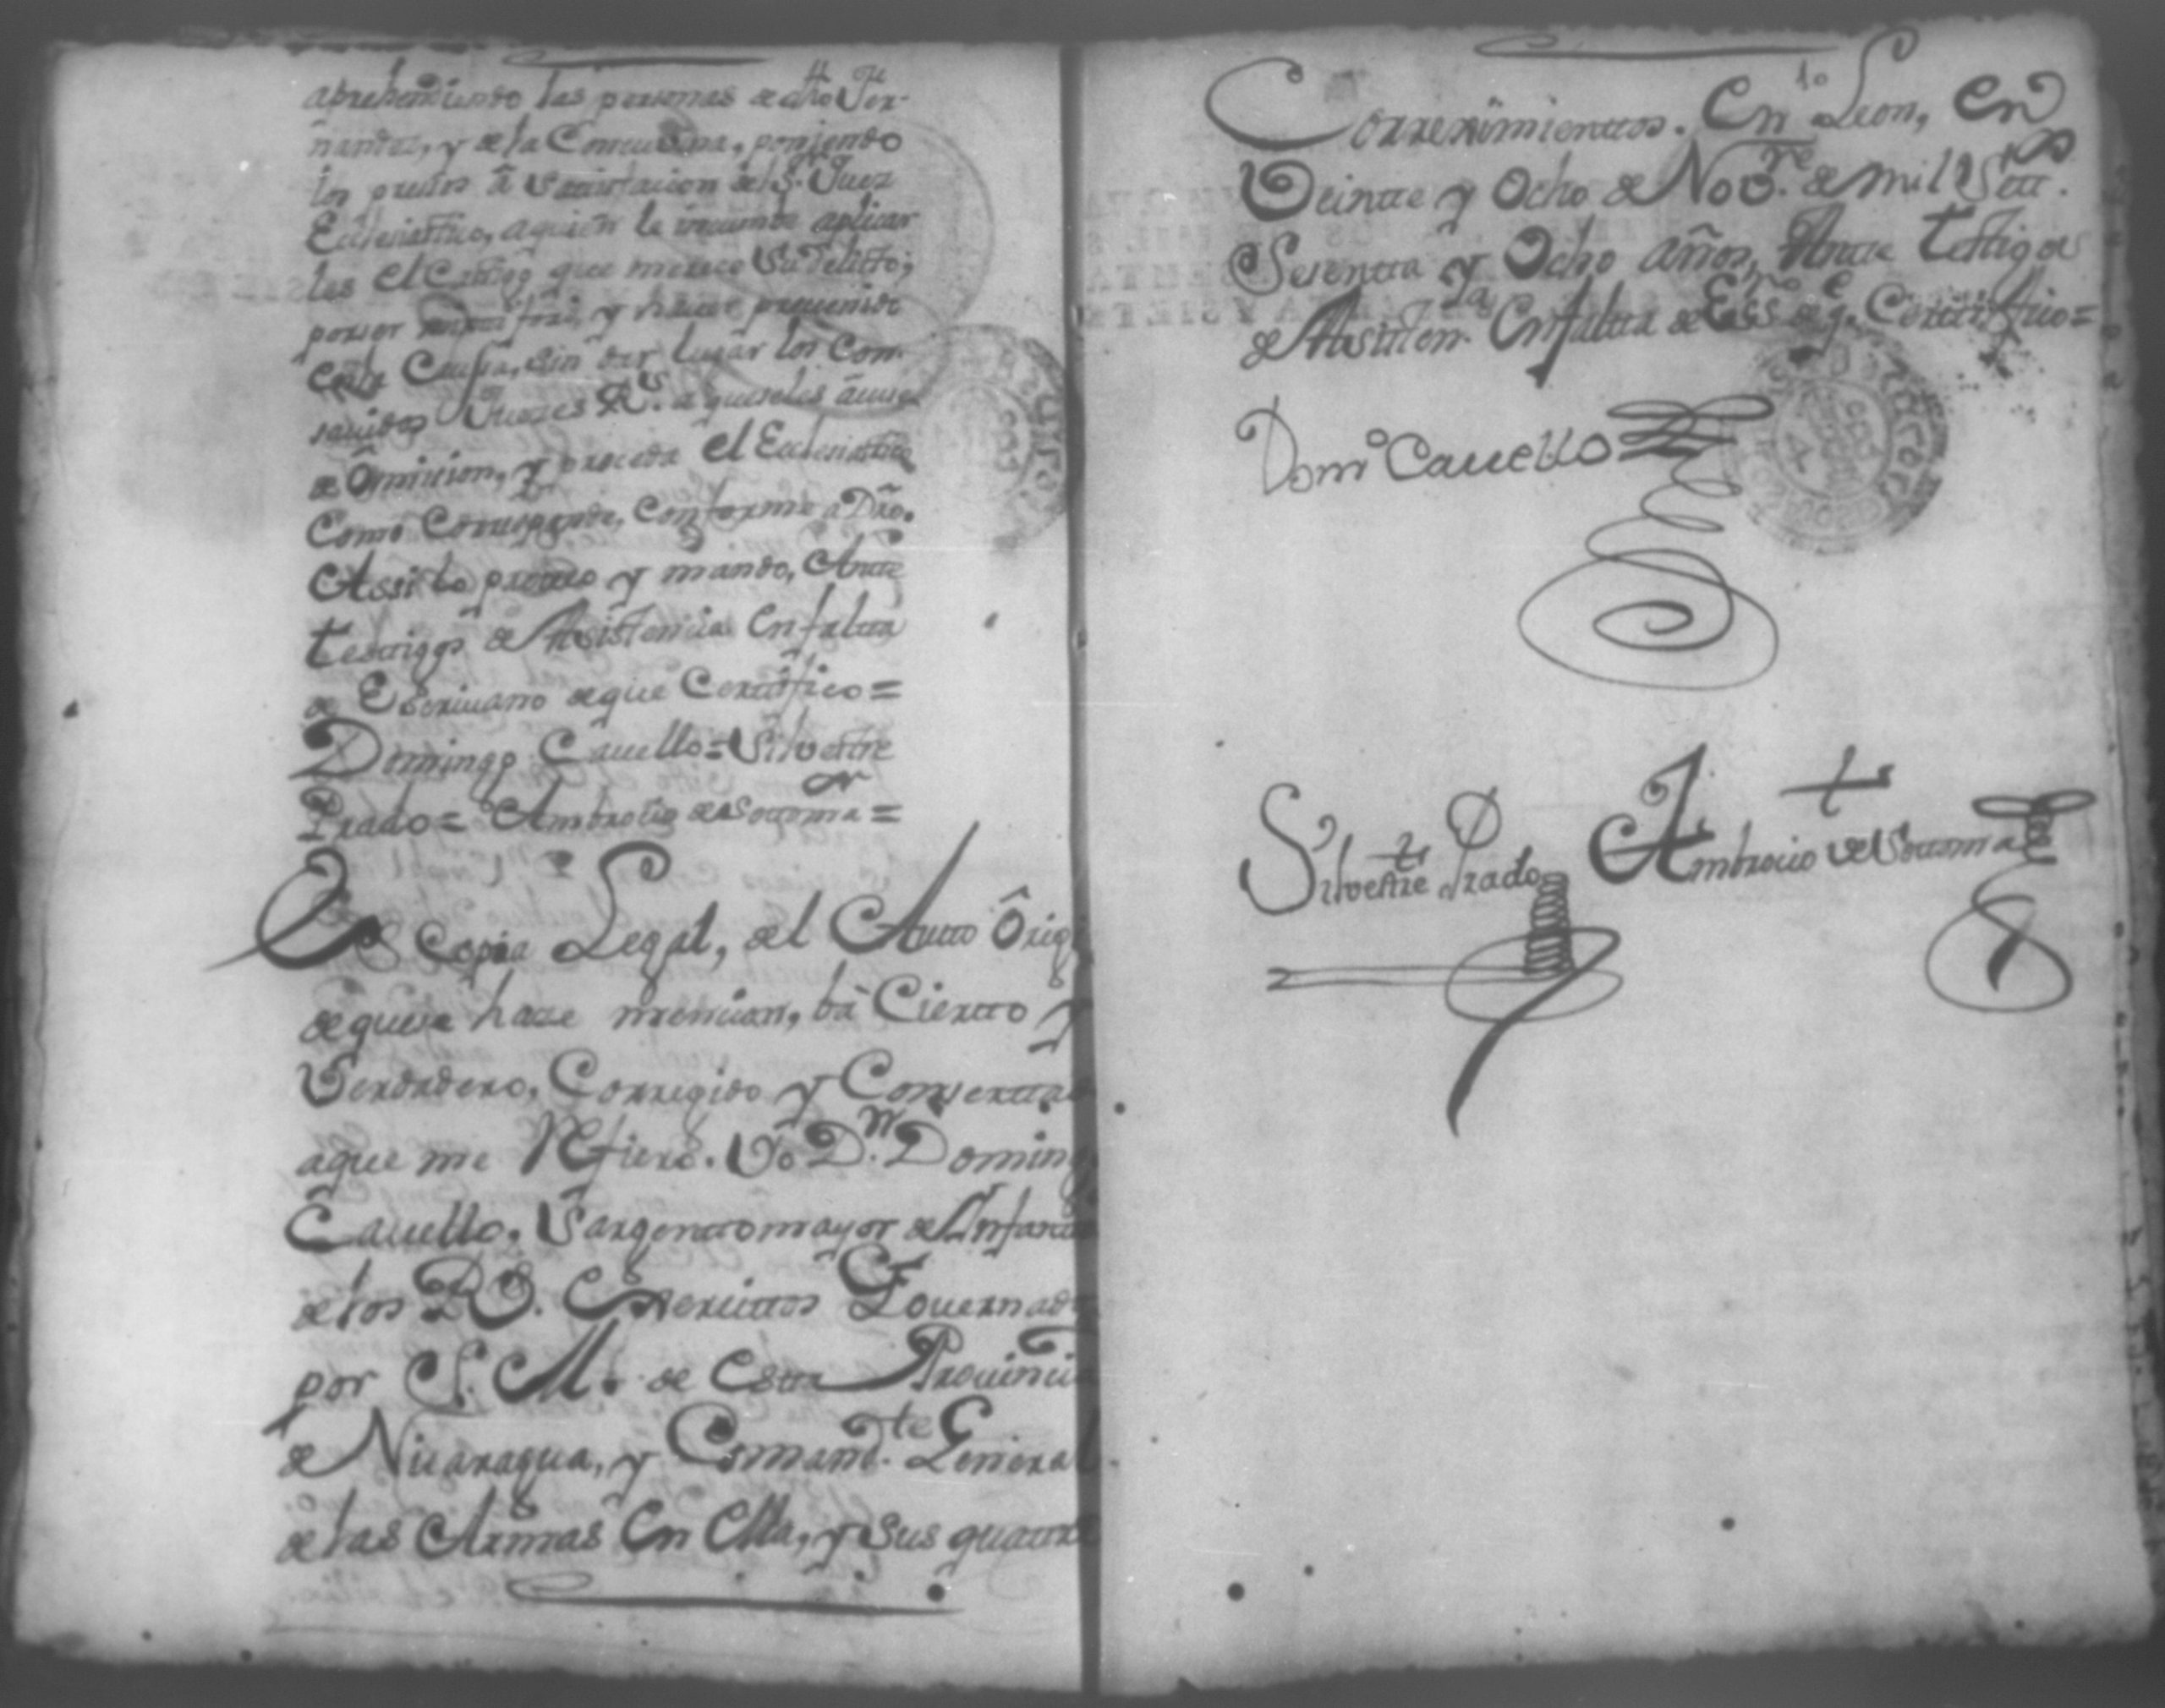 aprehendiendo las personas de dho Fer-
nandez, y de la Concuvina, poniendo
los presos â satisfaccion del S.r Juez
Eccleciastico, aquien le incumbe aplicar
les el Castigo que merece su Delitto;
por ser y haver prevenido
esta Causa, sin dar lugar los Com-
savidos Jueces R.s a que seles acuse
de Ômicion, y proceda el Ecclesiastico
Como Corresponde, Conforme a Dro.
Assi lo proveo y mando, Antte
testtigos de Asistencia En faltta
de Escrivano de que Certtifico=
Domingo Cavello= Silvestre
Prado= Ambrosio de Sottomar=
Es Copia Legal, del Autto Ôrigi
de que se haze mencion, bá Ciertto y
Verdadero, Corregido y Consertta
aque me Refiero. Yo D.n Doming
Cavello, Sargentto mayor de Infantt
de los R.s Exercittos Governad
por S. M. de Estta Provinci
de Nicaragua, y Comand.te General
de las Armas En Ella, y sus quattro
10
Correximienttos. En Leon, En
Veintte y Ocho de Nov.re de mil Sett.s
Sesentta y Ocho años, Antte testigos
de Asisten.a En faltta de Ess.no de q.e Certtifico=
Dom.o Cavello
Silvestre Prado Ambrocio de Sottoma